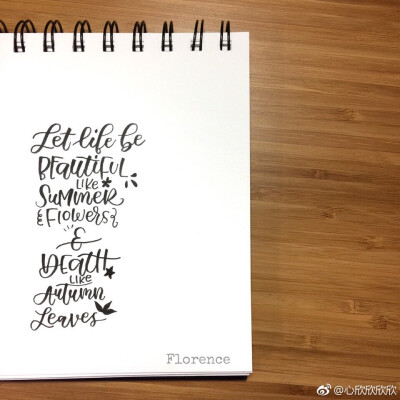 Let life be
BEAUTIFUL
LIKE
SUMMER
FLOWERS
&
DEATH
LIKE
Autumn
Leaves
Florence
@心欣欣欣欣